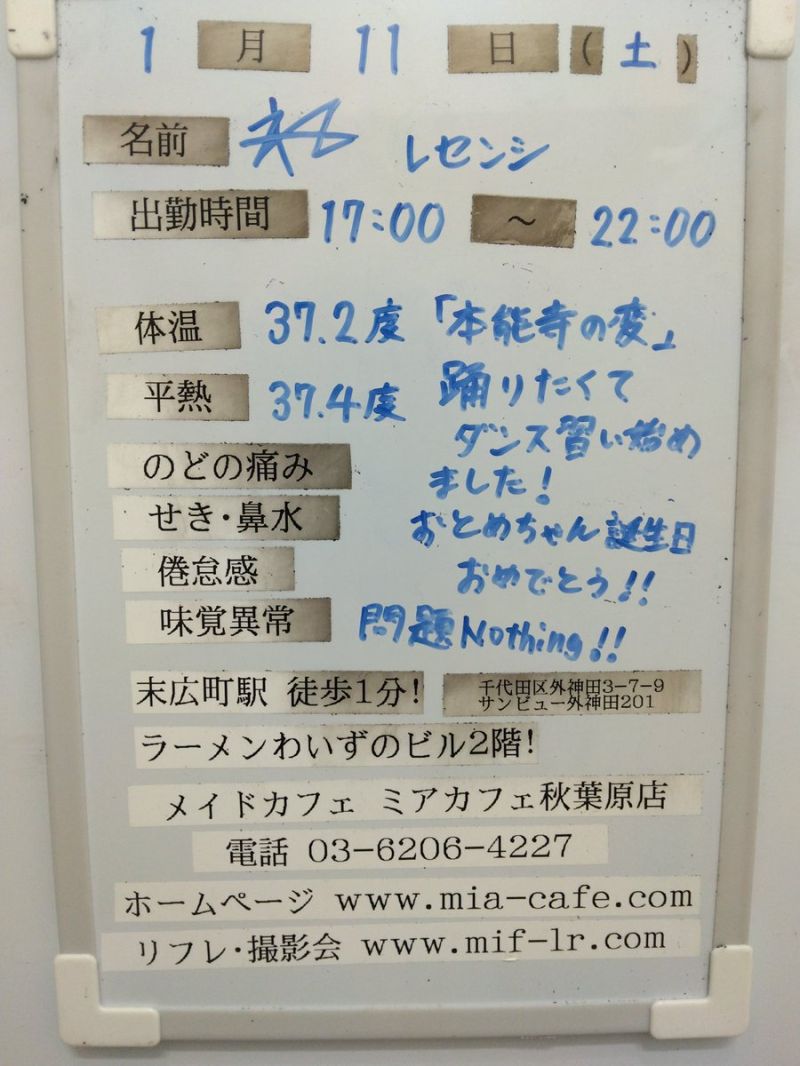 1月11日(土)
名前 レセンシ
出勤時間 17:00 ～ 22:00
体温 37.2度 「本能寺の変」
平熱 37.4度 踊りたくて
ダンス習い始め
のどの痛み ました!
せき・鼻水 おとめちゃん誕生日
倦怠感 おめでとう!!
味覚異常 問題Nothing!!
末広町駅 徒歩1分!
千代田区外神田3-7-9
サンビュー外神田201
ラーメンわいずのビル2階!
メイドカフェ ミアカフェ秋葉原店
電話 03-6206-4227
ホームページ www.mia-cafe.com
リフレ・撮影会 www.mif-lr.com